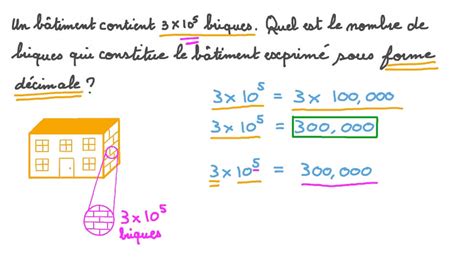 Un bâtiment contient 3 × 10⁵ briques. Quel est le nombre de
briques qui constitue le bâtiment exprimé sous forme
décimale ?
3 × 10⁵ = 3 × 100,000
3 × 10⁵ = 300,000
3 × 10⁵ = 300,000
3 × 10⁵
briques